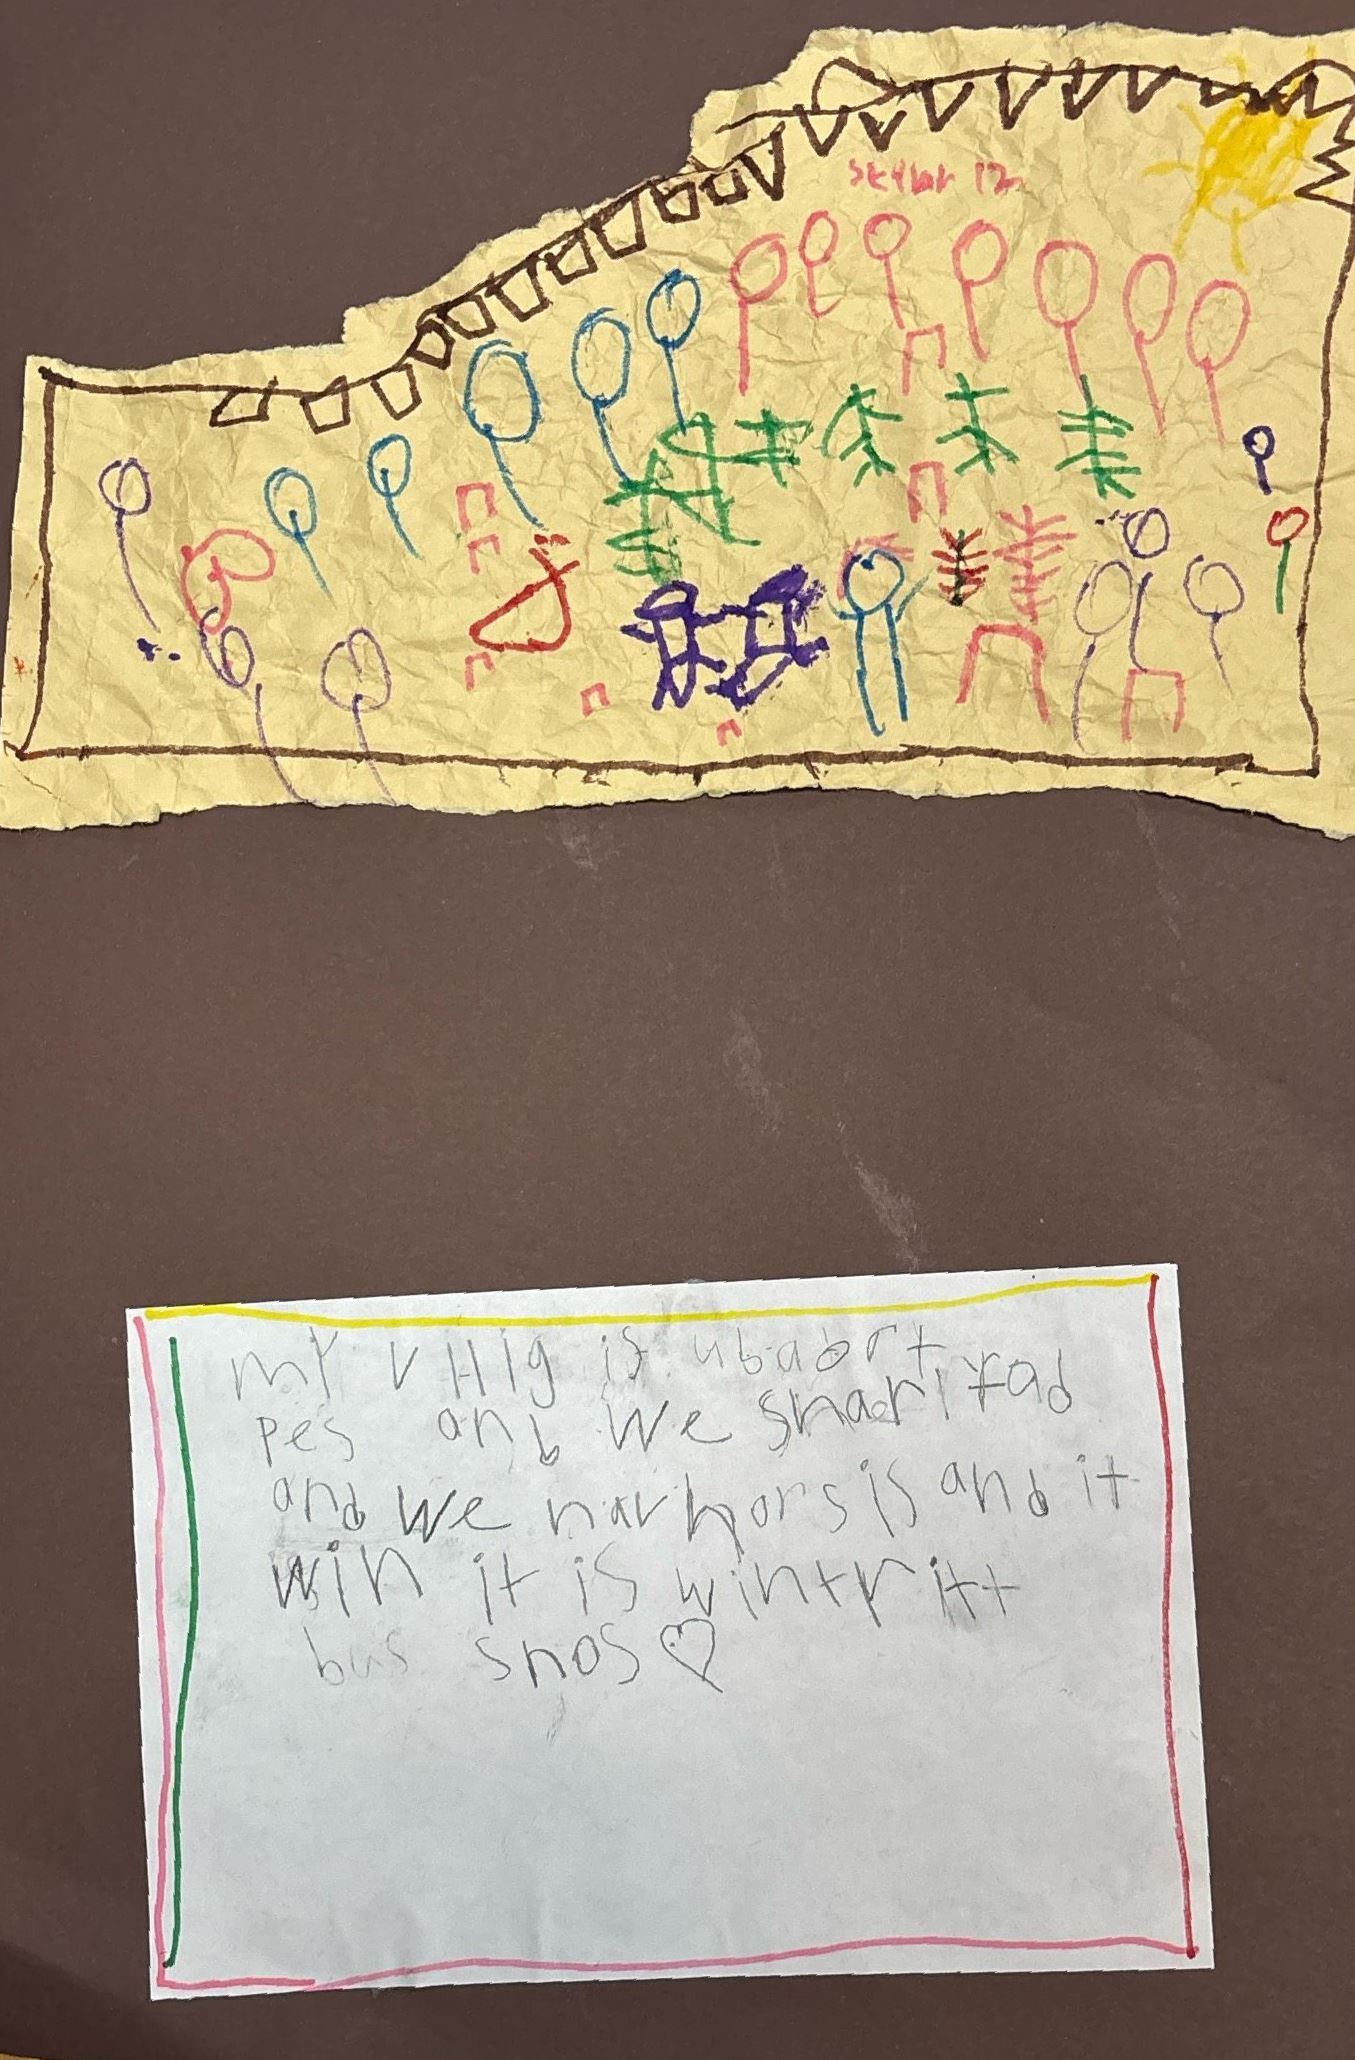 skylar 12
my VHig is ubabort
pes anb we snarltad
and we nar horsis and it
win it is wintr itt
bus snos